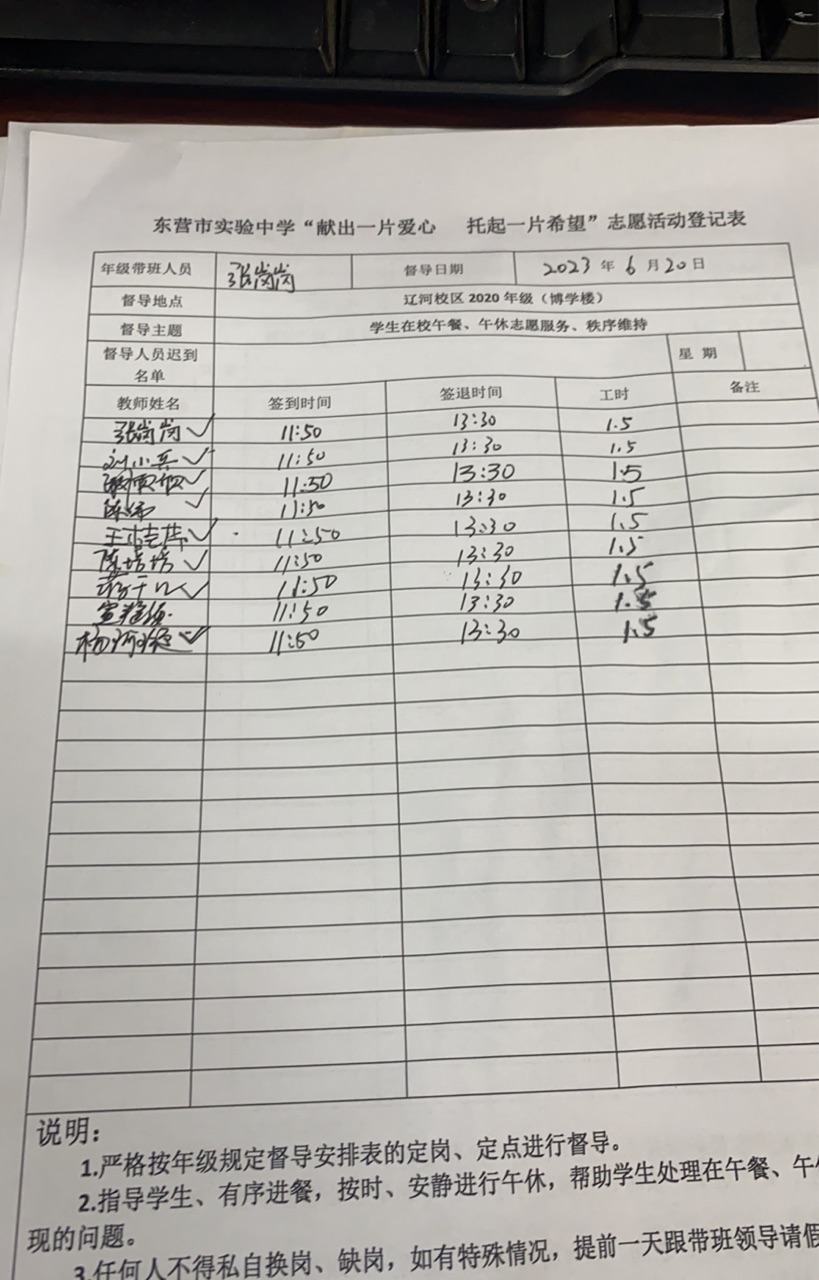 东营市实验中学“献出一片爱心 托起一片希望”志愿活动登记表
年级带班人员 张岗岗 督导日期 2023年6月20日
督导地点 辽河校区2020年级（博学楼）
督导主题 学生在校午餐、午休志愿服务、秩序维持
督导人员迟到名单 星期
教师姓名 签到时间 签退时间 工时 备注
张岗岗✓ 11:50 13:30 1.5
刘小兵✓ 11:50 13:30 1.5
✓ 11:50 13:30 1.5
✓ 11:50 13:30 1.5
✓ 11:50 13:30 1.5
陈培培✓ 11:50 13:30 1.5
✓ 11:50 13:30 1.5
11:50 13:30 1.5
✓ 11:50 13:30 1.5
说明：
1.严格按年级规定督导安排表的定岗、定点进行督导。
2.指导学生、有序进餐，按时、安静进行午休，帮助学生处理在午餐、午
现的问题。
3.任何人不得私自换岗、缺岗，如有特殊情况，提前一天跟带班领导请假